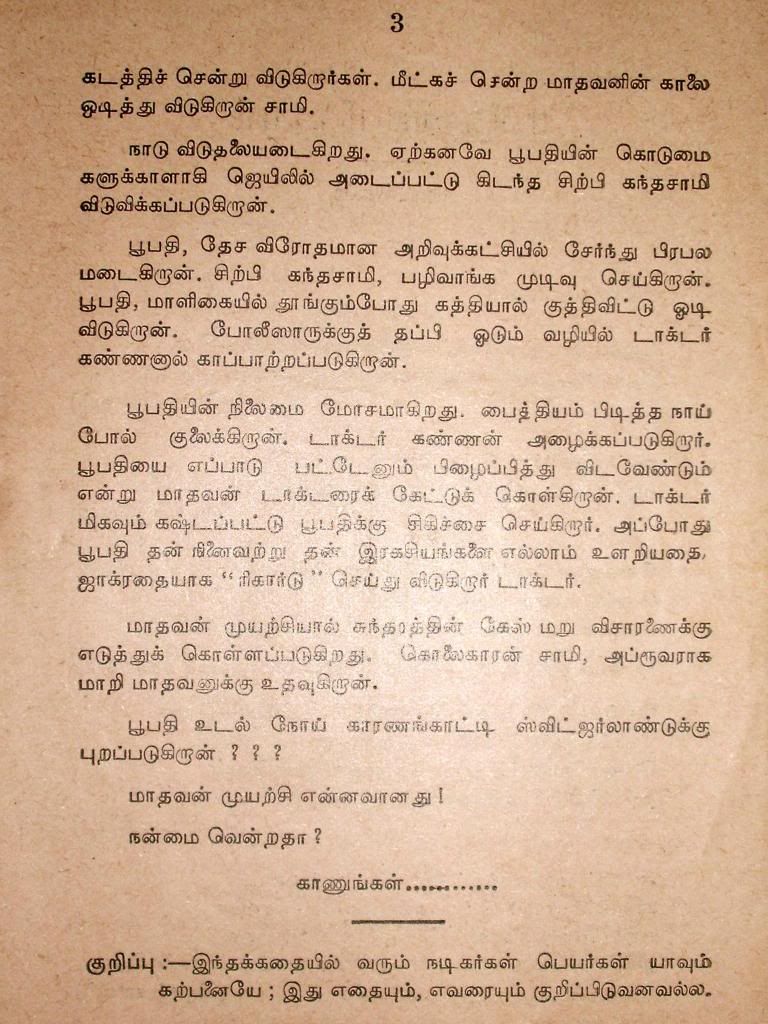 3
கடத்திச் சென்று விடுகிறார்கள். மீட்கச் சென்ற மாதவனின் காலை
ஒடித்து விடுகிறான் சாமி.
நாடு விடுதலையடைகிறது. ஏற்கனவே பூபதியின் கொடுமை
களுக்காளாகி ஜெயிலில் அடைப்பட்டு கிடந்த சிற்பி கந்தசாமி
விடுவிக்கப்படுகிறான்.
பூபதி, தேச விரோதமான அறிவுக்கட்சியில் சேர்ந்து பிரபல
மடைகிறான். சிற்பி கந்தசாமி, பழிவாங்க முடிவு செய்கிறான்.
பூபதி, மாளிகையில் தூங்கும்போது கத்தியால் குத்திவிட்டு ஓடி
விடுகிறான். போலீஸாருக்குத் தப்பி ஓடும் வழியில் டாக்டர்
கண்ணனால் காப்பாற்றப்படுகிறான்.
பூபதியின் நிலைமை மோசமாகிறது. பைத்தியம் பிடித்த நாய்
போல் குலைக்கிறான். டாக்டர் கண்ணன் அழைக்கப்படுகிறார்.
பூபதியை எப்பாடு பட்டேனும் பிழைப்பித்து விடவேண்டும்
என்று மாதவன் டாக்டரைக் கேட்டுக் கொள்கிறான். டாக்டர்
மிகவும் கஷ்டப்பட்டு பூபதிக்கு சிகிச்சை செய்கிறார். அப்போது
பூபதி தன் நினைவற்று தன் இரகசியங்களை எல்லாம் உளறியதை,
ஜாக்ரதையாக “ரிகார்டு” செய்து விடுகிறார் டாக்டர்.
மாதவன் முயற்சியால் சுந்தரத்தின் கேஸ் மறு விசாரணைக்கு
எடுத்துக் கொள்ளப்படுகிறது. கொலைகாரன் சாமி, அப்ரூவராக
மாறி மாதவனுக்கு உதவுகிறான்.
பூபதி உடல் நோய் காரணங்காட்டி ஸ்விட்ஜர்லாண்டுக்கு
புறப்படுகிறான் ? ? ?
மாதவன் முயற்சி என்னவானது !
நன்மை வென்றதா ?
காணுங்கள்............
குறிப்பு :—இந்தக்கதையில் வரும் நடிகர்கள் பெயர்கள் யாவும்
கற்பனையே ; இது எதையும், எவரையும் குறிப்பிடுவனவல்ல.